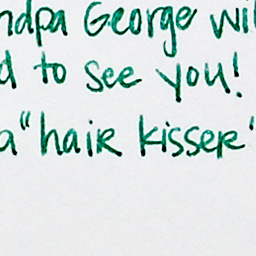 ndpa George wil
d to see you!
a "hair kisser"